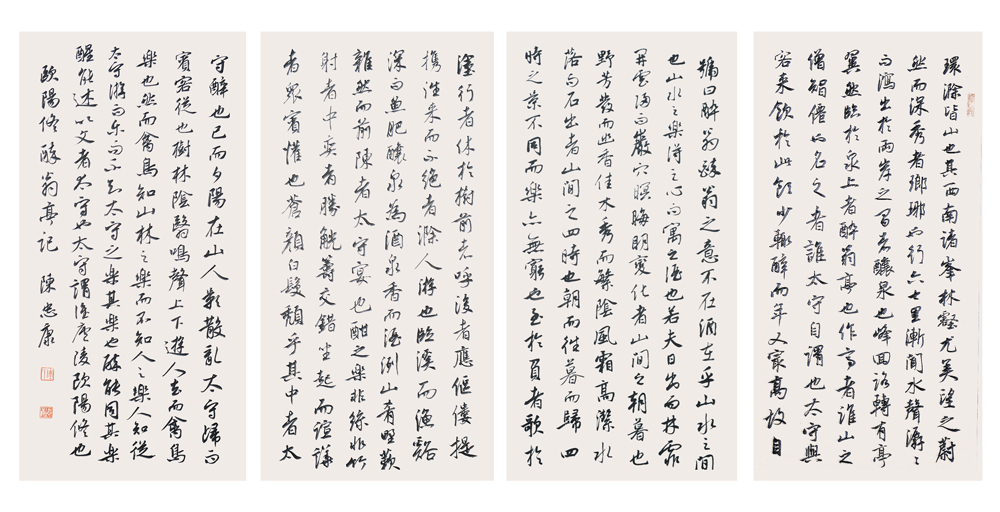 環滁皆山也其西南諸峯林壑尤美望之蔚
然而深秀者瑯琊也行六七里漸聞水聲潺々
而瀉出於兩峯之間者釀泉也峰回路轉有亭
翼然臨於泉上者醉翁亭也作亭者誰山之
僧智僊也名之者誰太守自謂也太守與
客來飲於此飲少輒醉而年又最高故自
號曰醉翁醉翁之意不在酒在乎山水之間
也山水之樂得之心而寓之酒也若夫日出而林霏
開雲歸而巖穴暝晦明變化者山間之朝暮也
野芳發而幽香佳木秀而繁陰風霜高潔水
落而石出者山間之四時也朝而往暮而歸四
時之景不同而樂亦無窮也至於負者歌於
塗行者休於樹前者呼後者應傴僂提
攜往來而不絕者滁人游也臨溪而漁谿
深而魚肥釀泉為酒泉香而酒洌山肴野蔌
雜然而前陳者太守宴也酣之樂非絲非竹
射者中奕者勝觥籌交錯坐起而諠譁
者衆賓懽也蒼顏白髮頹乎其中者太
守醉也已而夕陽在山人影散亂太守歸而
賓客從也樹林陰翳鳴聲上下遊人去而禽鳥
樂也然而禽鳥知山林之樂而不知人之樂人知從
太守游而樂而不知太守之樂其樂也醉能同其樂
醒能述以文者太守也太守謂誰廬陵歐陽修也
歐陽修醉翁亭記 陳忠康